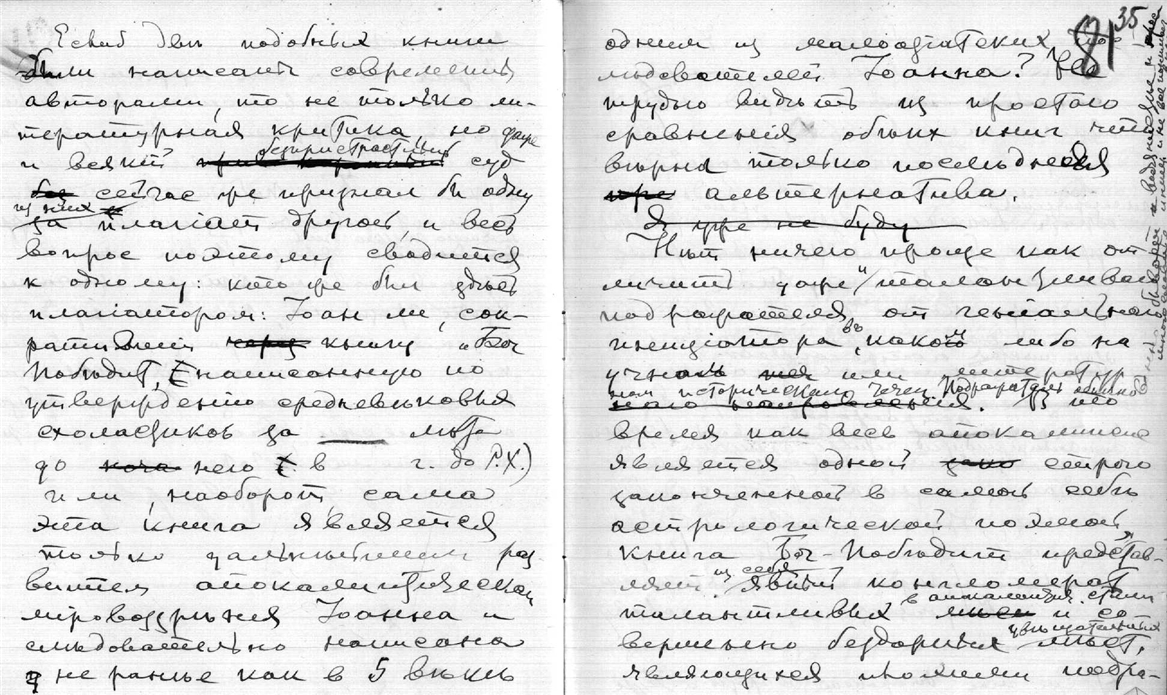 Еслиб две подобных книги
были написаны современными
авторами, то не только ли-
тературная критика, но даже
и всякий безпристрастный суд
сейчас же признал бы одну
из них за плагіат другой, и весь
вопрос поэтому сводится
к одному: кто же был здѣсь
плагіатором: Іоан ли, сок-
ративший книгу „Бог
Побѣдит, написанную по
утвержденію средневѣковых
схоластиков за лѣт
до него в г. до Р.Х.)
или наоборот сама
эта книга является
только дальнѣйшим раз-
витием апокалиптической
міровоззрѣнія Іоанна и
слѣдовательно написана
не раньше как в 5 вѣкѣ
35
81
одним из малоазіатских
лѣдователей Іоанна?
трудно видѣть из простого
сравненія обѣих книг что
вѣрна только послѣдняя
альтернатива.
Я уже не буду
Нѣт ничего проще как от
личить даже талантливаго
подражателя от геніальнаго
иниціатора, в каком либо на
учном или литератур
ном историческом
В то
время как весь апокалипсис
является одной строго
законченной в самой себѣ
астрологической поэмой,
книга Бог-Побѣдит представ-
ляет из себя явный конгломерат
талантливых в апокалипсис. стилѣ и со
вершенно бездарных мѣст,
являющихся плохими подра-